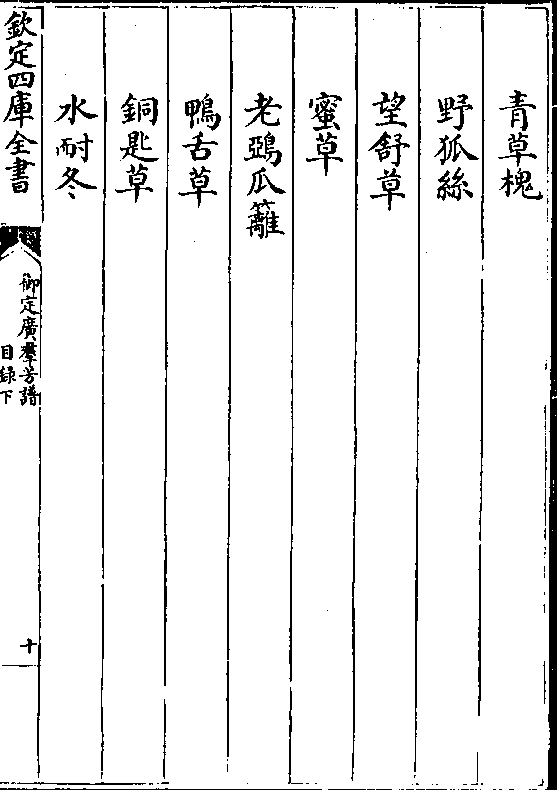 青草槐
野狐絲
望舒草
蜜草
老鵶瓜籬
鴨舌草
銅匙草
水耐冬
欽定四庫全書
御定廣羣芳譜
目錄下
十